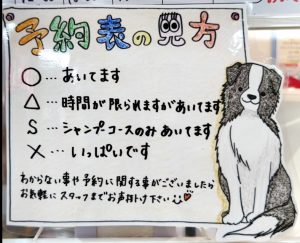 予約表の見方
○…あいてます
△…時間が限られますがあいてます
S…シャンプーコースのみあいてます
×…いっぱいです
わからない事や予約に関する事がございましたら
お気軽にスタッフまでお声掛け下さい